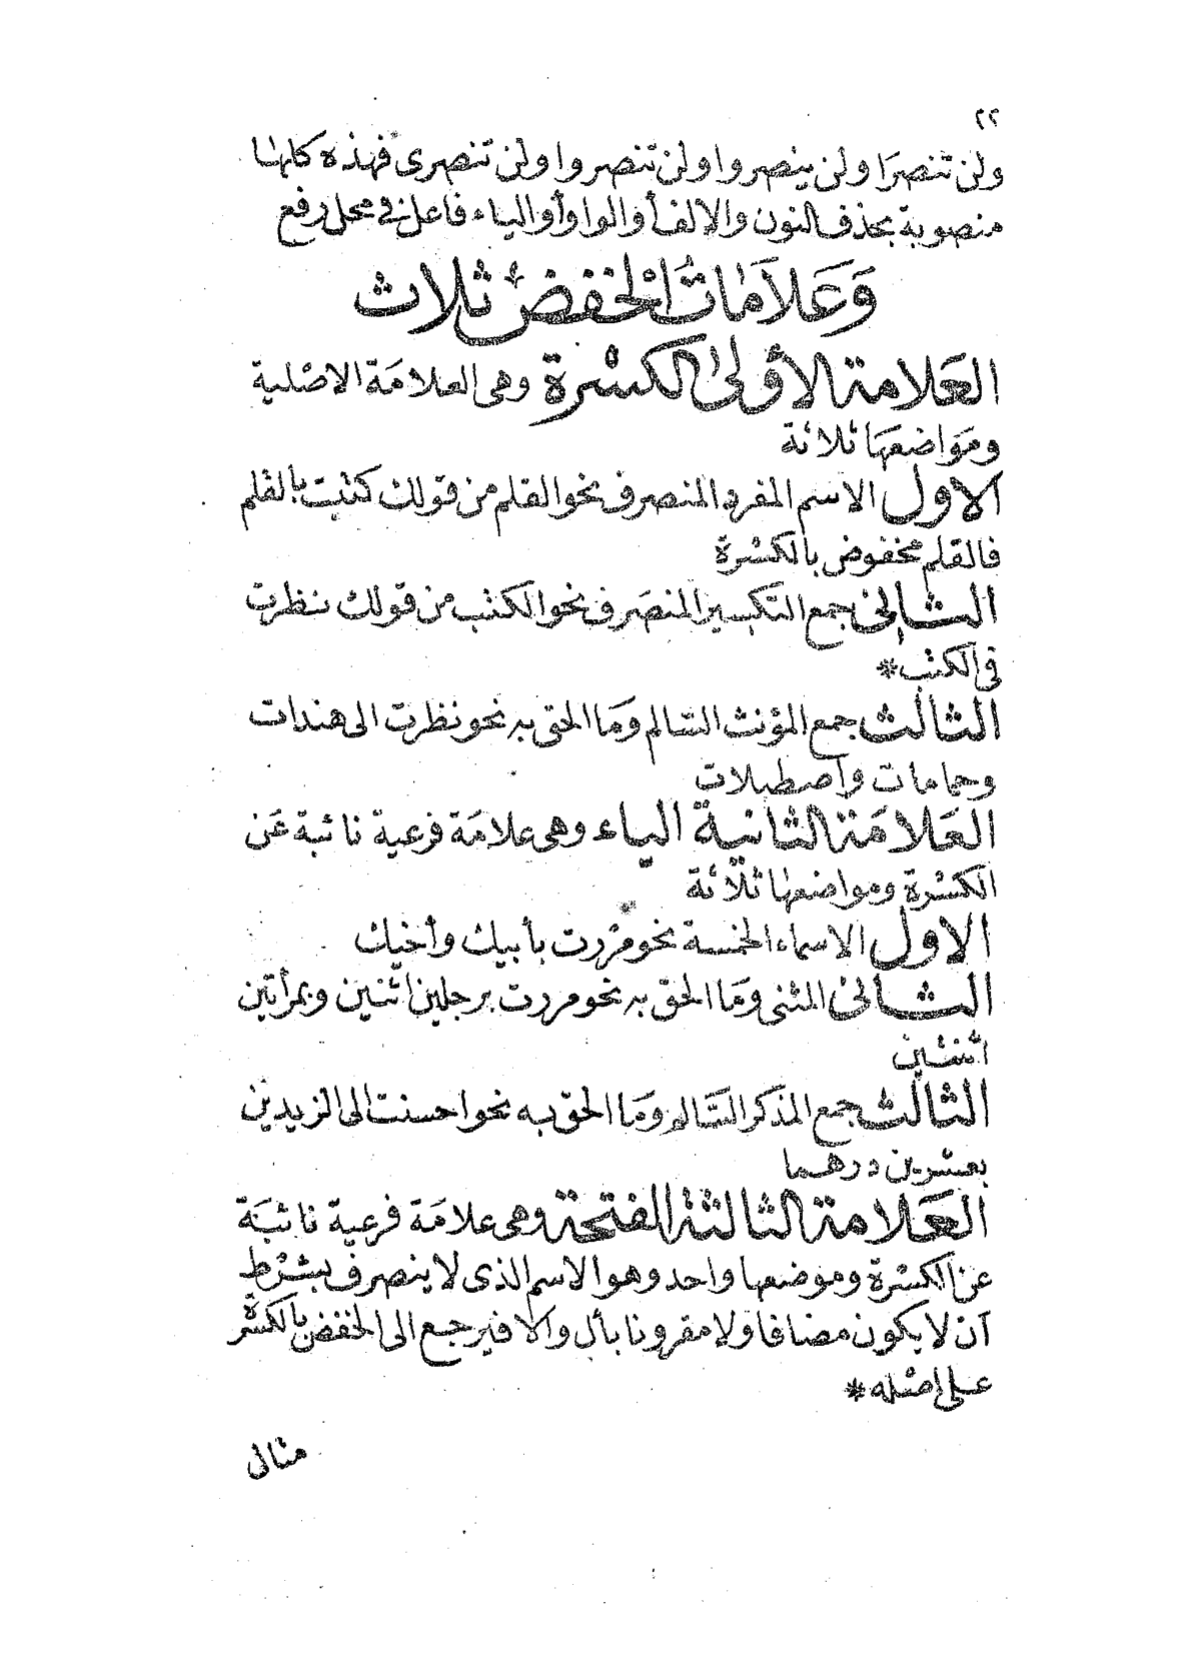 ٢٢
ولن تنصرَا ولن ينصروا ولن تنصروا ولن تنصرى فهذه كلها
منصوبة بحذف النون والالف أو الواو أو الياء فاعل فى محل رفع
وَعَلاَمَاتُ الْخفض ثلاث
العَلامة الأولى الكسْرة وهى العلامَة الاصْلية
ومَوَاضعهَا ثلاثة
الاول الاسم المفرد المنصرف نحو القلم من قولك كتبت بالقلم
فالقلم مخفوض بالكسْرة
الثانى جمع التكسير المنصَرف نحو الكتب من قولك نظرت
فى الكتب *
الثالث جمع المؤنث السَّالم وَمَا الحق به نحو نظرت الى هندات
وحمامات واصطبلات
العَلامَة الثانية الياء وهى علامَة فرعية نائبة عَن
الكسْرة ومواضعها ثلاثة
الاول الاسماء الخمسة نحو مَررت بأبيك وأخيك
الثانى المثنى وَمَا الحق به نحو مررت برجلين اثنين وبمرأتين
اثنتين
الثالث جمع المذكر السَّالم وَمَا الحق به نحو احسنت الى الزيدين
بعشرين درهما
العَلامة الثالثة الفتحة وهى علامَة فرعية نائبَة
عن الكسْرة وموضعها واحد وهو الاسم الذى لا ينصرف بشرْط
أن لا يكون مضافا ولا مقرونا بأل والا فيرجع الى الخفض بالكسْرة
على اصْله *
مثال